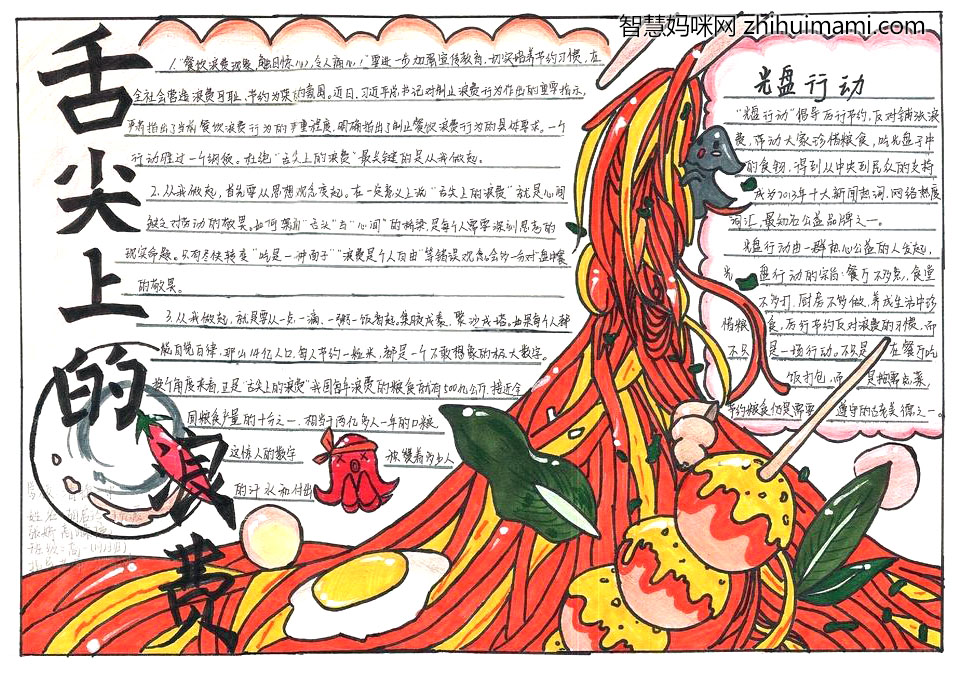 智慧妈咪网 zhihuimami.com
舌尖上的浪费
1."餐饮浪费现象,触目惊心,令人痛心!"要进一步加强宣传教育,切实培养节约习惯,在
全社会营造浪费可耻、节约为荣的氛围。近日,习近平总书记对制止浪费行为作出的重要指示,
指出了当前餐饮浪费行为的严重程度,明确指出了制止餐饮浪费行为的具体要求。一个
行动胜过一个纲领。杜绝"舌尖上的浪费"最关键的是从我做起。
2.从我做起,首先要从思想观念变起。在一定意义上说"舌尖上的浪费"就是心间
缺乏对劳动的敬畏。如何架 "舌尖"与"心间"的桥梁,是每个人需要深刻思考的
现实命题。只有尽快转变"吃是一种面子""浪费是个人自由"等错误观念,会的一份对"盘中餐"
的敬畏。
3.从我做起,就是要从一点一滴、一粥一饭省起,集腋成裘、聚沙成塔。如果每个人都
能自觉自律,那么14亿人口,每人节约一粒米,都是一个不敢想象的极大数字。
换个角度来看,正是"舌尖上的浪费"我国每年浪费的粮食就有500亿公斤,接近全
国粮食产量的十分之一,相当于两亿多人一年的口粮
这惊人的数字
着多少人
的汗水和付出
光盘行动
"光盘行动"倡导厉行节约,反对铺张浪
费,带动大家珍惜粮食,吃光盘子中
的食物,得到从中央到民众的支持
成为2013年十大新闻热词、网络热度
词汇,最知名公益品牌之一。
光盘行动由一群热心公益的人发起,
光盘行动的宗旨:餐厅不多点,食堂
不多打,厨房不多做,养成生活中珍
惜粮食,厉行节约反对浪费的习惯,而
不只是一场行动。不只是在餐厅吃
饭打包,而是按需点菜,
节约粮食仍是需要遵守的古老美德之一。